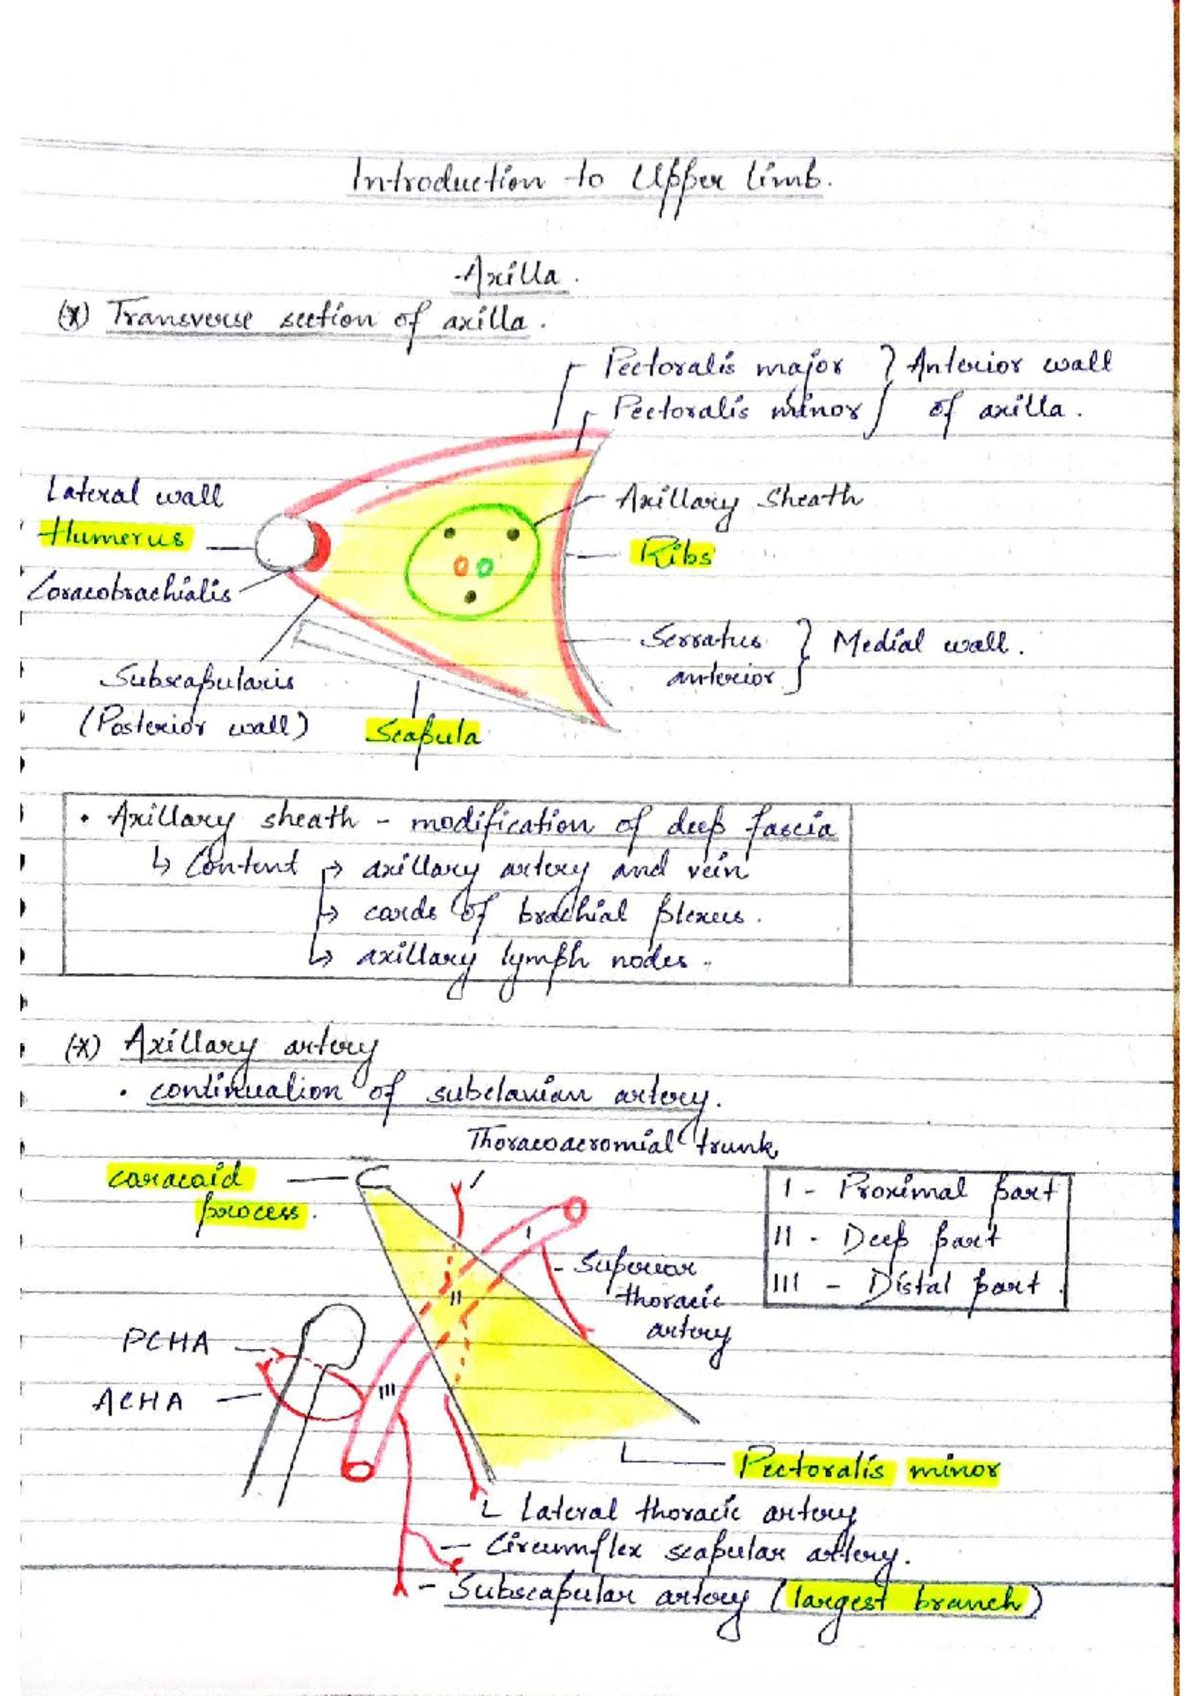 Introduction to Upper limb.
Axilla.
(*) Transverse section of axilla.
Pectoralis major } Anterior wall
Pectoralis minor } of axilla.
Lateral wall
Axillary Sheath
Humerus
Ribs
Coracobrachialis
Serratus } Medial wall.
anterior }
Subscapularis
(Posterior wall)
Scapula
• Axillary sheath - modification of deep fascia
↳ Content → axillary artery and vein
→ cords of brachial plexus.
↳ axillary lymph nodes.
(*) Axillary artery
• continuation of subclavian artery.
Thoracoacromial trunk
coracoid
process.
I - Proximal part
II - Deep part
III - Distal part.
I
Superior
thoracic
artery
II
PCHA
III
ACHA
Pectoralis minor
Lateral thoracic artery
Circumflex scapular artery.
Subscapular artery (largest branch)